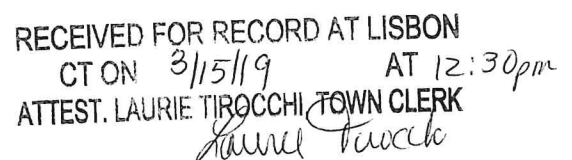 RECEIVED FOR RECORD AT LISBON
CT ON 3/15/19 AT 12:30pm
ATTEST. LAURIE TIROCCHI, TOWN CLERK
Laurie Tirocchi